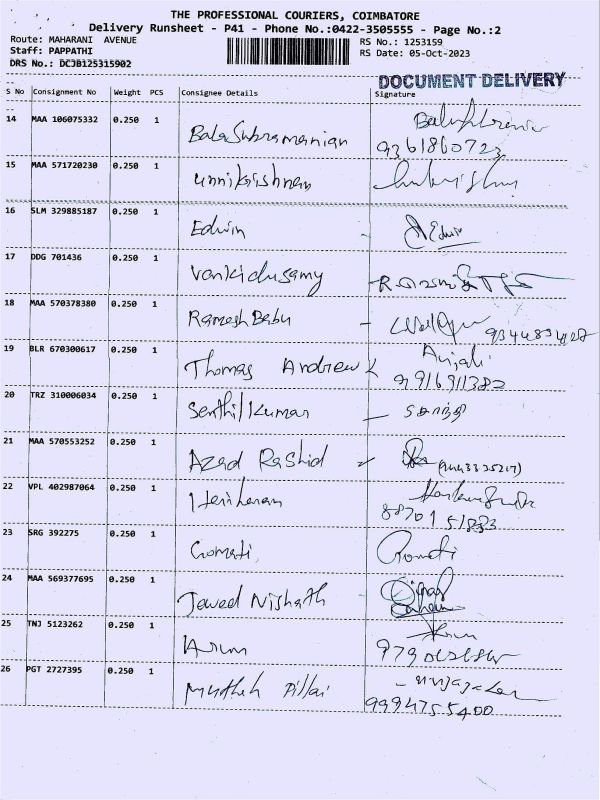 THE PROFESSIONAL COURIERS, COIMBATORE
Delivery Runsheet - P41 - Phone No.:0422-3505555 - Page No.:2
Route: MAHARANI AVENUE
RS No.: 1253159
Staff: PAPPATHI
RS Date: 05-Oct-2023
DRS No.: DCJB125315902
DOCUMENT DELIVERY
S No Consignment No Weight PCS Consignee Details Signature
14 MAA 106075332 0.250 1 BalaSubramanian
9361860723
15 MAA 571720230 0.250 1 unnikrishnan
16 SLM 329885187 0.250 1 Edwin - Edwin
17 DDG 701436 0.250 1 Venkidusamy
18 MAA 570378380 0.250 1 Ramesh Babu -
19 BLR 670300617 0.250 1 Thomas Andrew Anjali
9916911382
20 TRZ 310006034 0.250 1 Senthil Kumar -
21 MAA 570553252 0.250 1 Azad Rashid
22 VPL 402987064 0.250 1 Hariharan
23 SRG 392275 0.250 1 Gomati Gomati
24 MAA 569377695 0.250 1 Javed Nishath
25 TNJ 5123262 0.250 1 Arun Arun
26 PGT 2727395 0.250 1 Muthah Pillai
9994755400